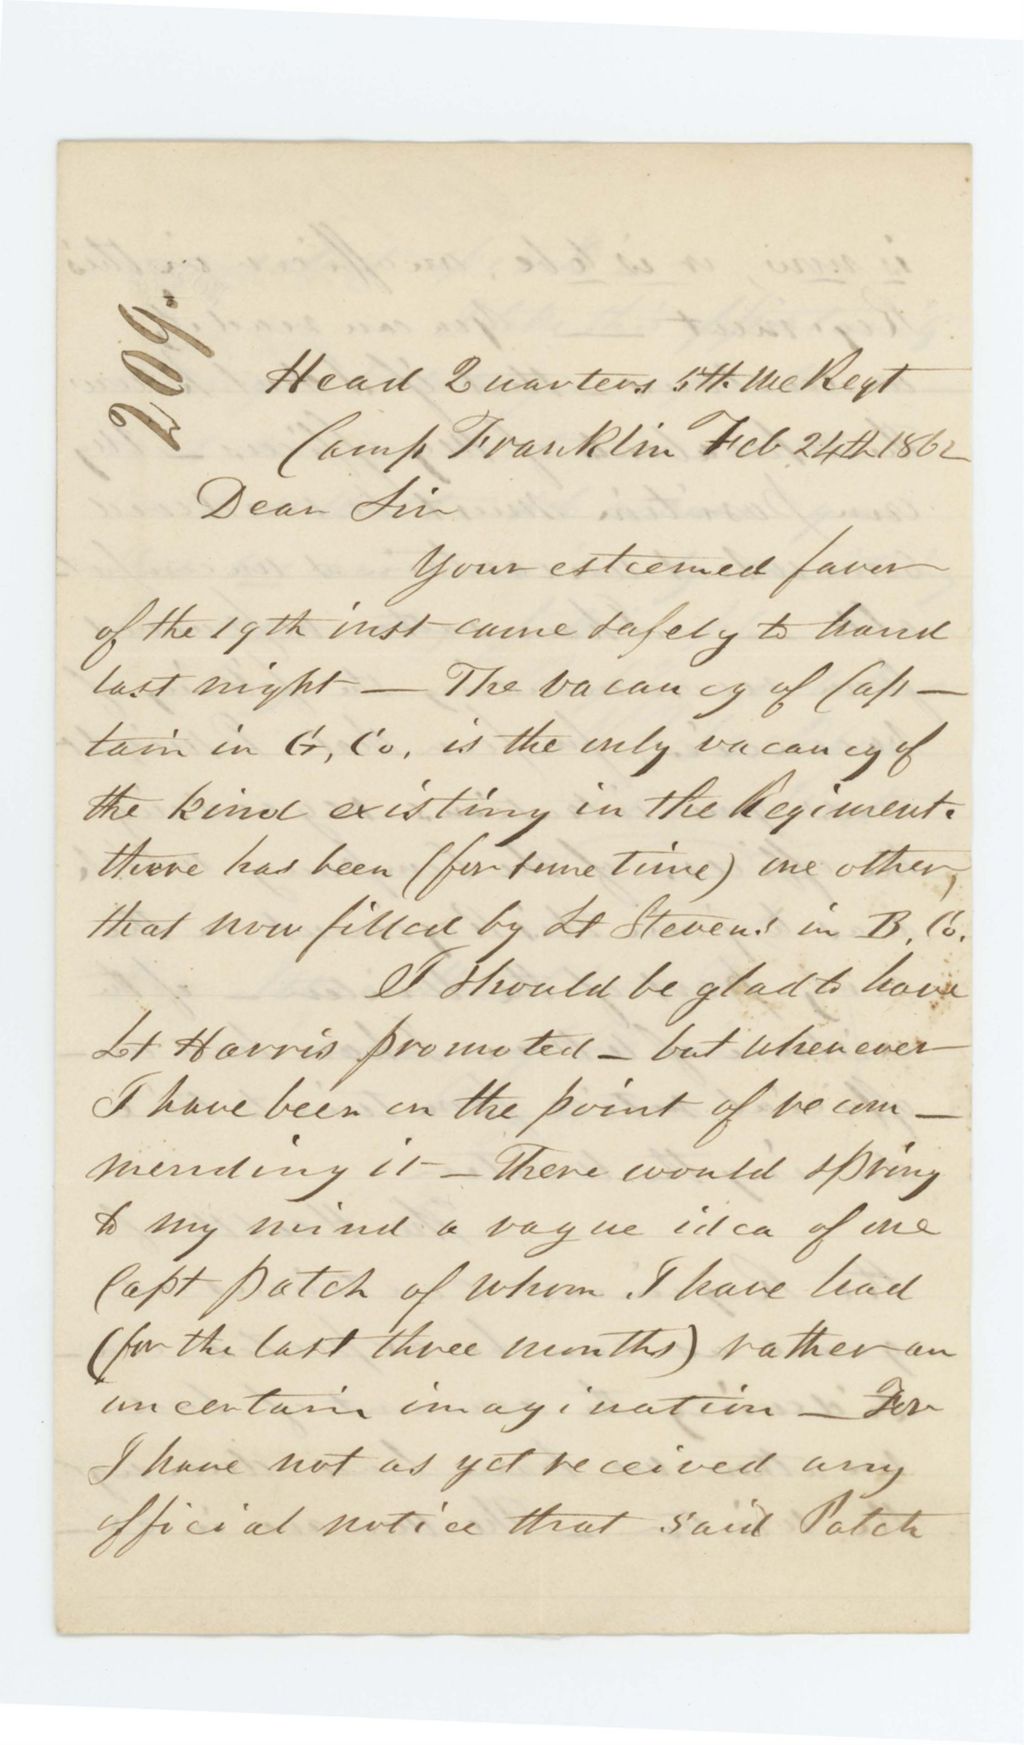 209.
Head Quarters 5th Me Regt
Camp Franklin Feb 24th 1862
Dear Sir
Your esteemed favor
of the 19th inst came safely to hand
last night — The vacancy of Cap—
tain in G, Co. is the only vacancy of
the kind existing in the Regiment.
there has been (for some time) one other,
that now filled by Lt Stevens in B. Co.
I should be glad to have
Lt Harris promoted — but whenever
I have been on the point of recom—
mending it — There would spring
to my mind a vague idea of one
Capt Patch of whom I have had
(for the last three months) rather an
uncertain imagination — For
I have not as yet received any
official notice that said Patch